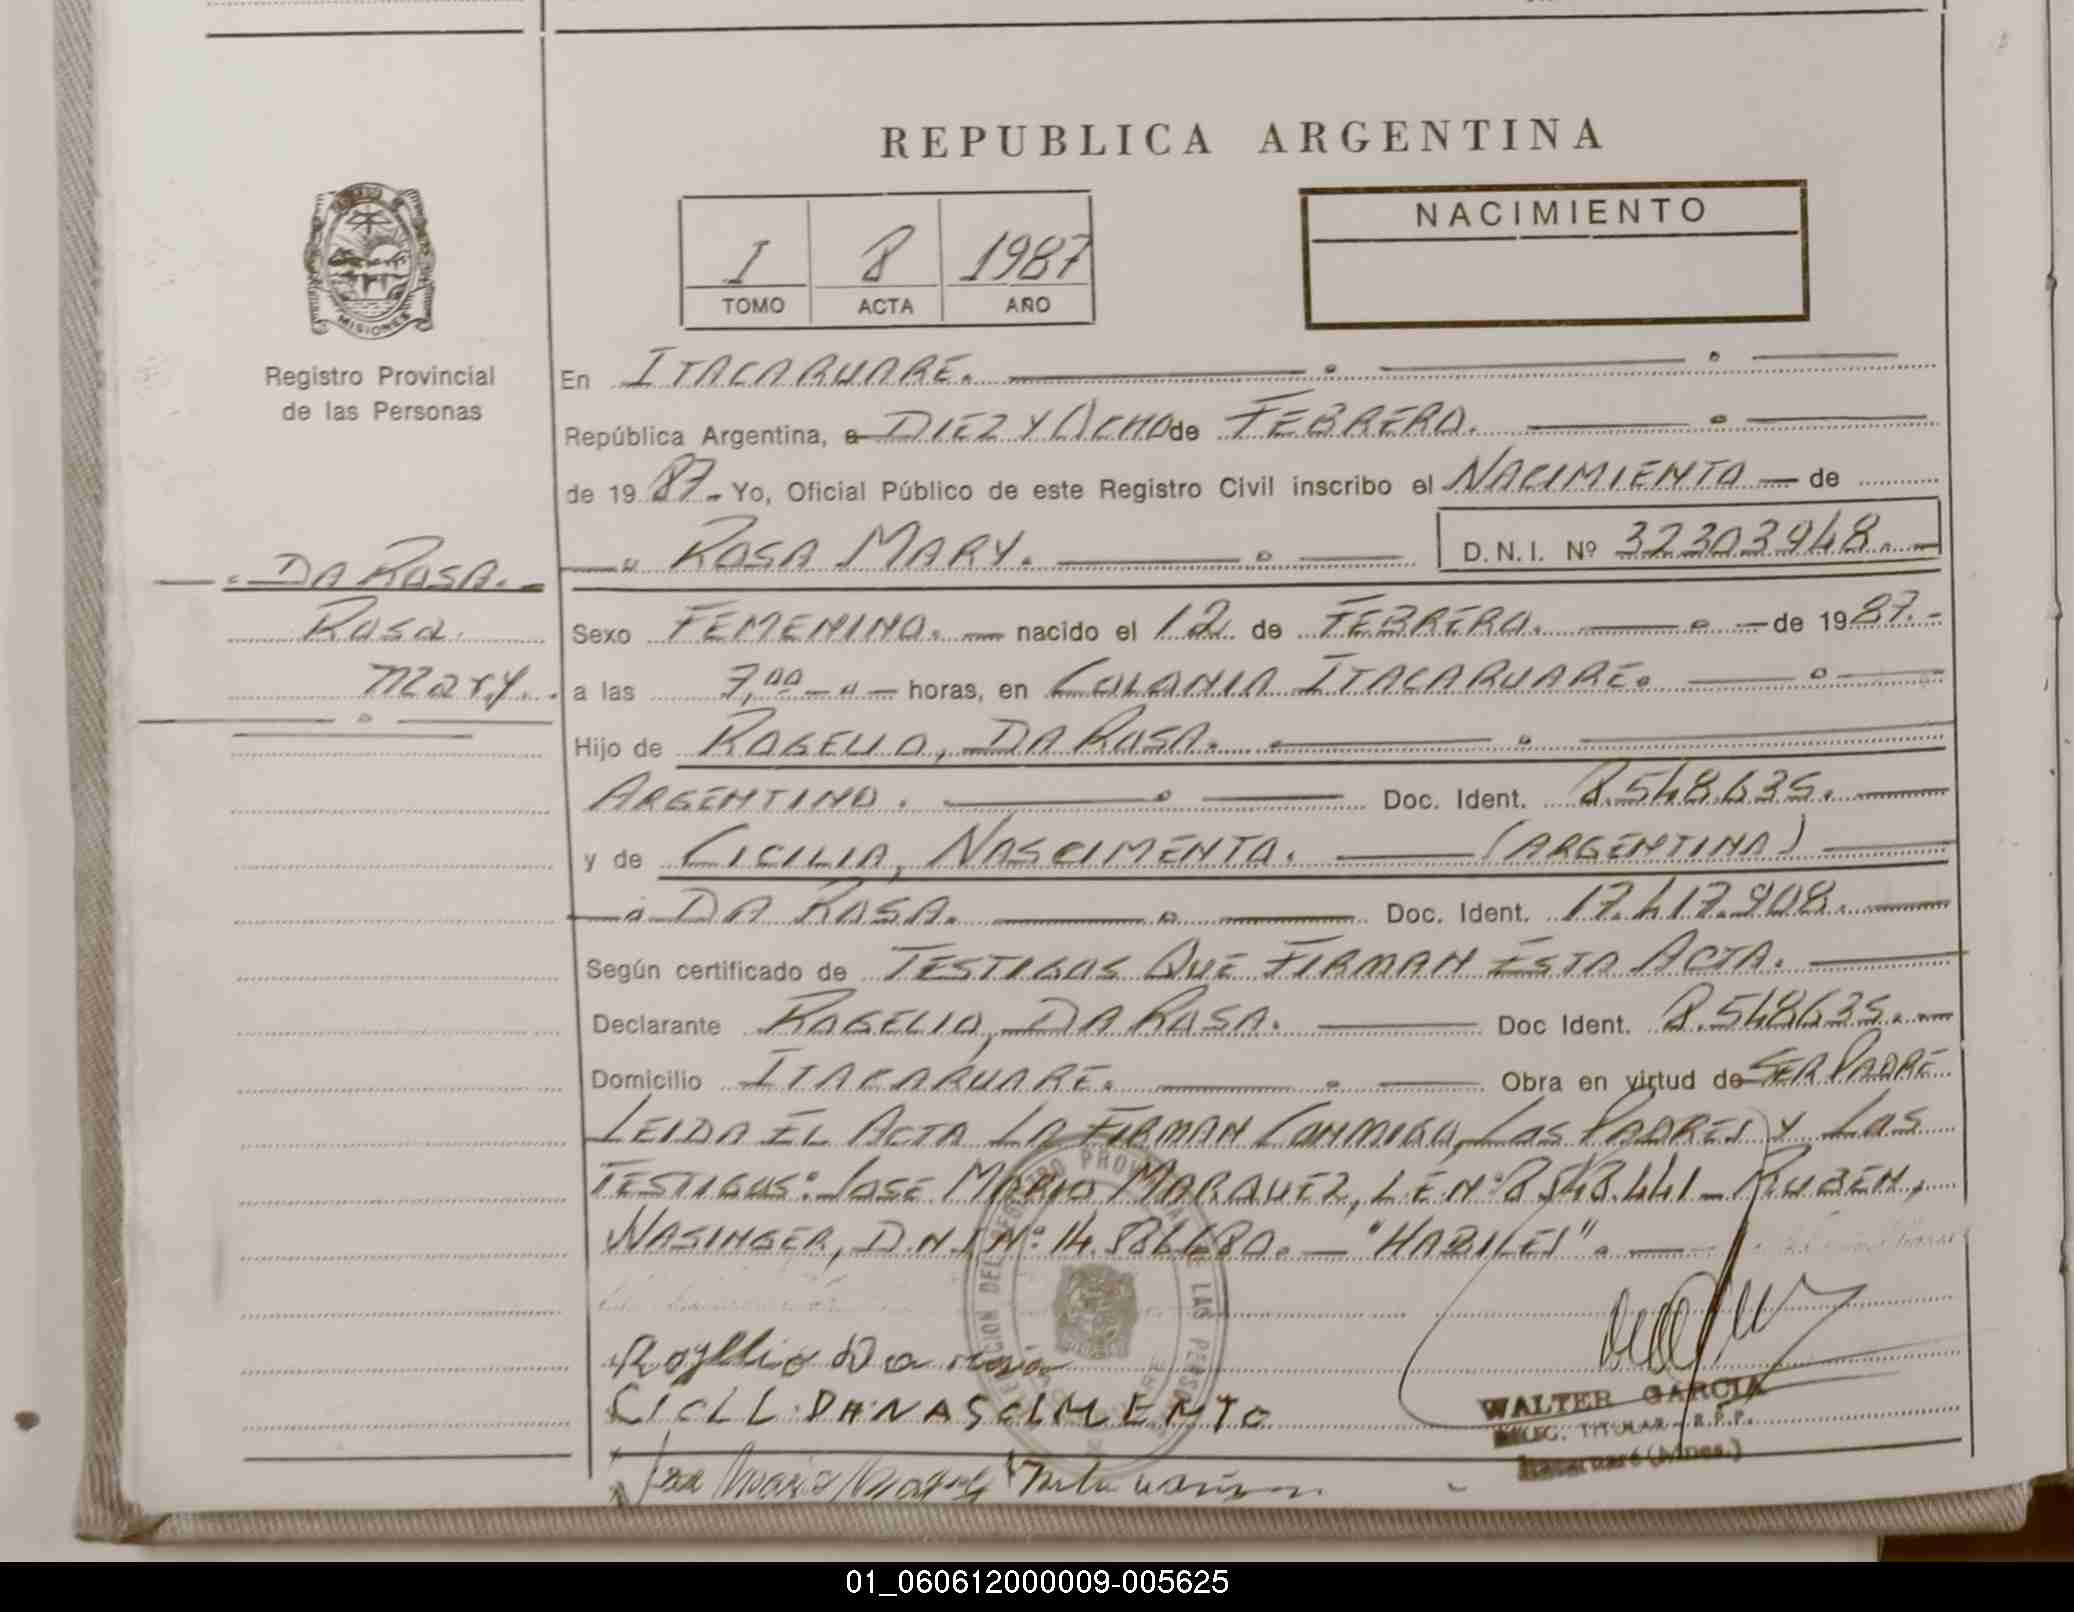 REPUBLICA ARGENTINA
I 8 1987
TOMO ACTA AÑO
NACIMIENTO
MISIONES
Registro Provincial
de las Personas
En ITACARUARE.
República Argentina, a DIEZ Y OCHO de FEBRERO.
de 1987. Yo, Oficial Público de este Registro Civil inscribo el NACIMIENTO de
ROSA MARY. D.N.I. Nº 32303948.
DA ROSA.
Rosa
Mary.
Sexo FEMENINO. nacido el 12 de FEBRERO. de 1987.-
a las 7,00 horas, en COLONIA ITACARUARE.
Hijo de ROGELIO, DA ROSA.
ARGENTINO. Doc. Ident. 8.548.635.
y de CICILIA, NASCIMENTO. (ARGENTINA)
DA ROSA. Doc. Ident. 17.417.908.
Según certificado de TESTIGOS QUE FIRMAN ESTA ACTA.
Declarante ROGELIO, DA ROSA. Doc Ident. 8.548635.
Domicilio ITACARUARE. Obra en virtud de SER PADRE
LEIDA EL ACTA LA FIRMAN CONMIGO, LOS PADRES Y LOS
TESTIGOS: JOSE MARIO MARQUEZ, L.E.Nº 8.548.441 - RUBEN,
WASINGER, D.N.I Nº 14.586680. — "HABILES".
Rogellio Da rosa
CICLL DA NASCIMENTO
WALTER GARCIA
DELEG. TITULAR - R.P.P.
Itacaruaré (Mnes.)
Jose Mario Marquez
01_060612000009-005625